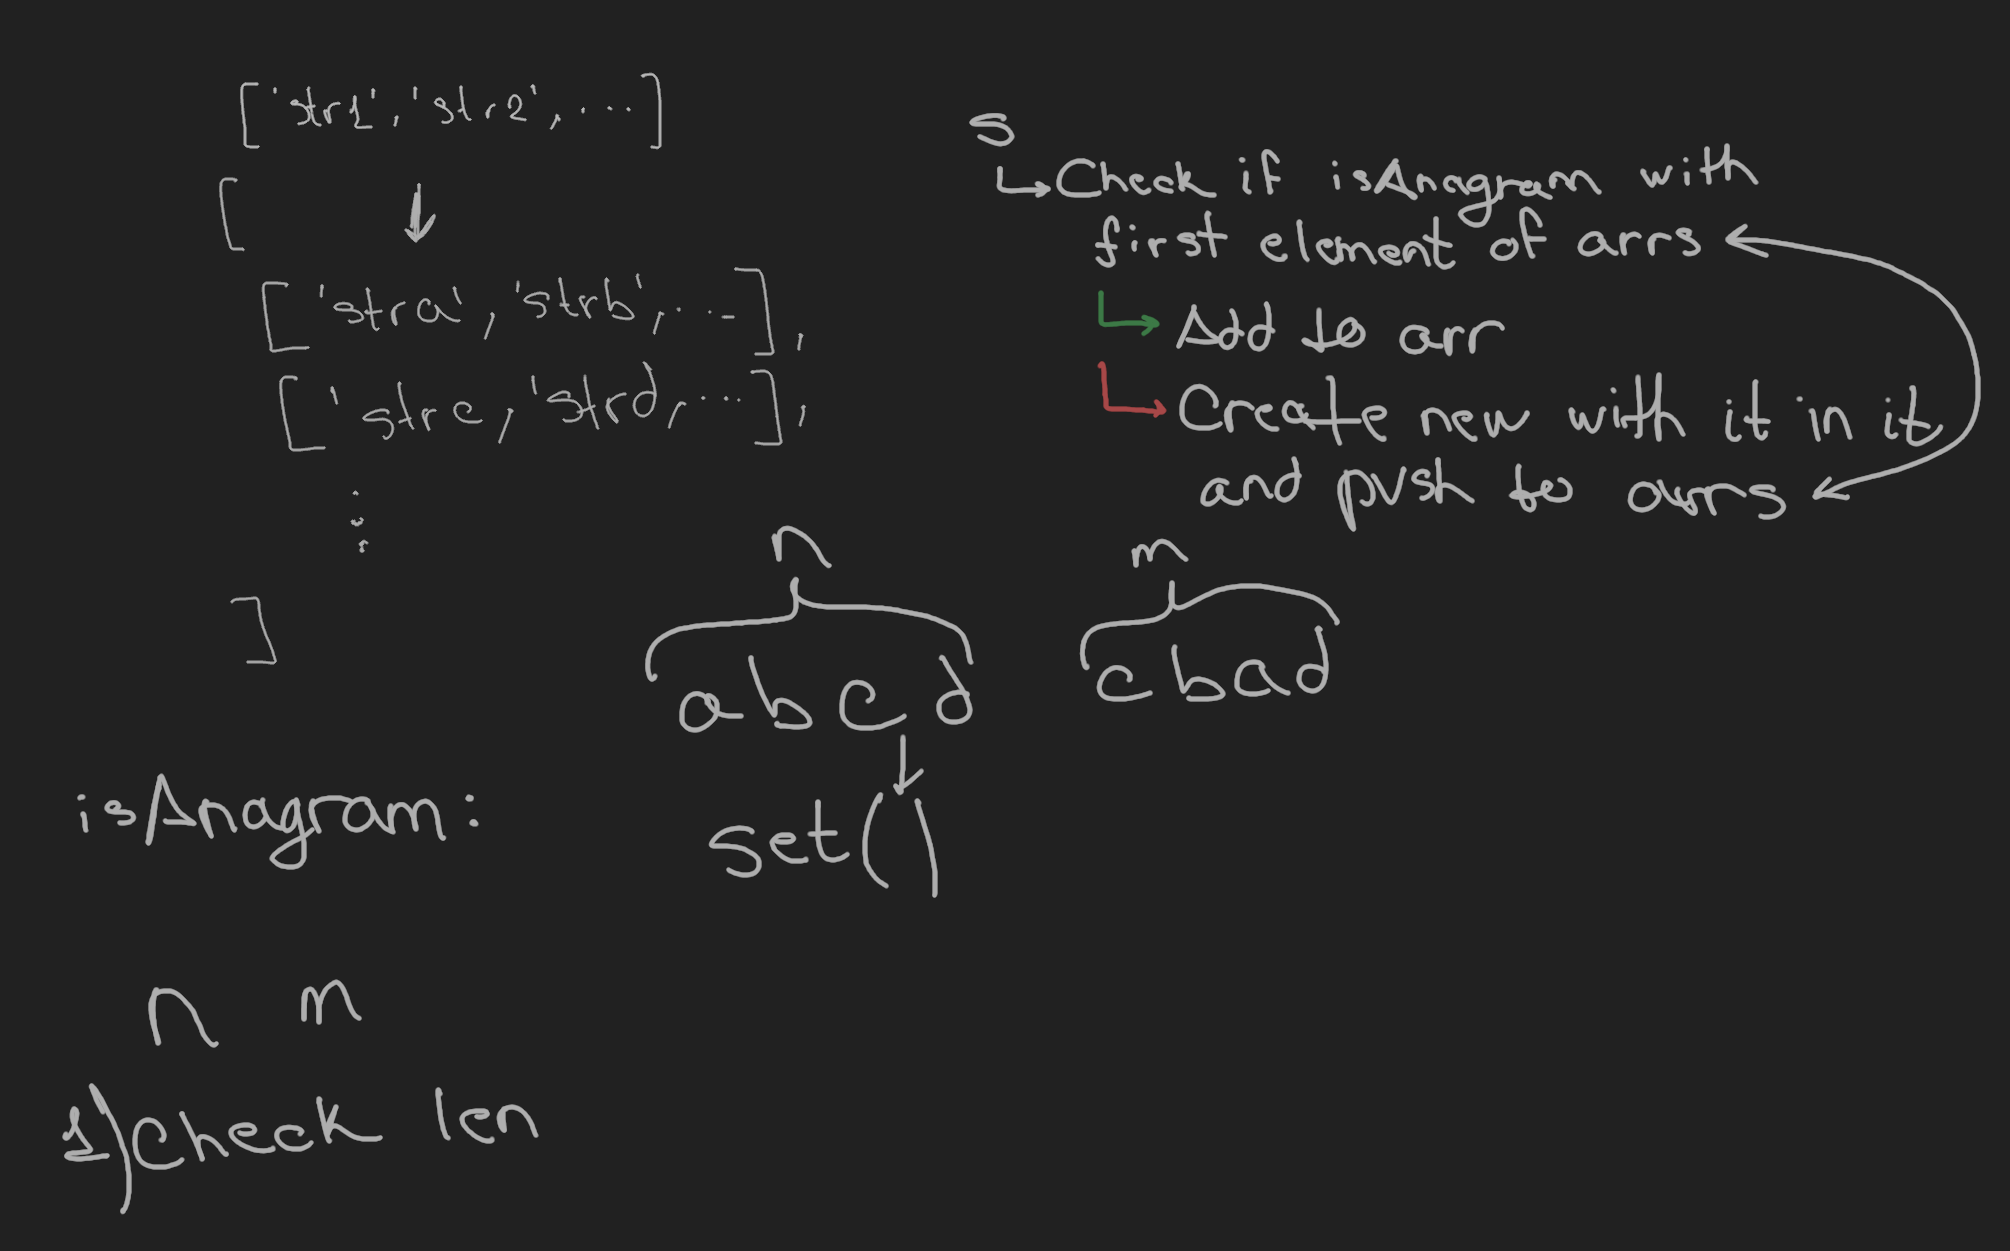 ['str1', 'str2', ...]
[
['stra', 'strb', ...],
['strc, 'strd, ...],
⋮
]
s
Check if isAnagram with
first element of arrs
Add to arr
Create new with it in it
and push to arrs
n
m
abcd
cbad
set()
isAnagram:
n m
1) Check len